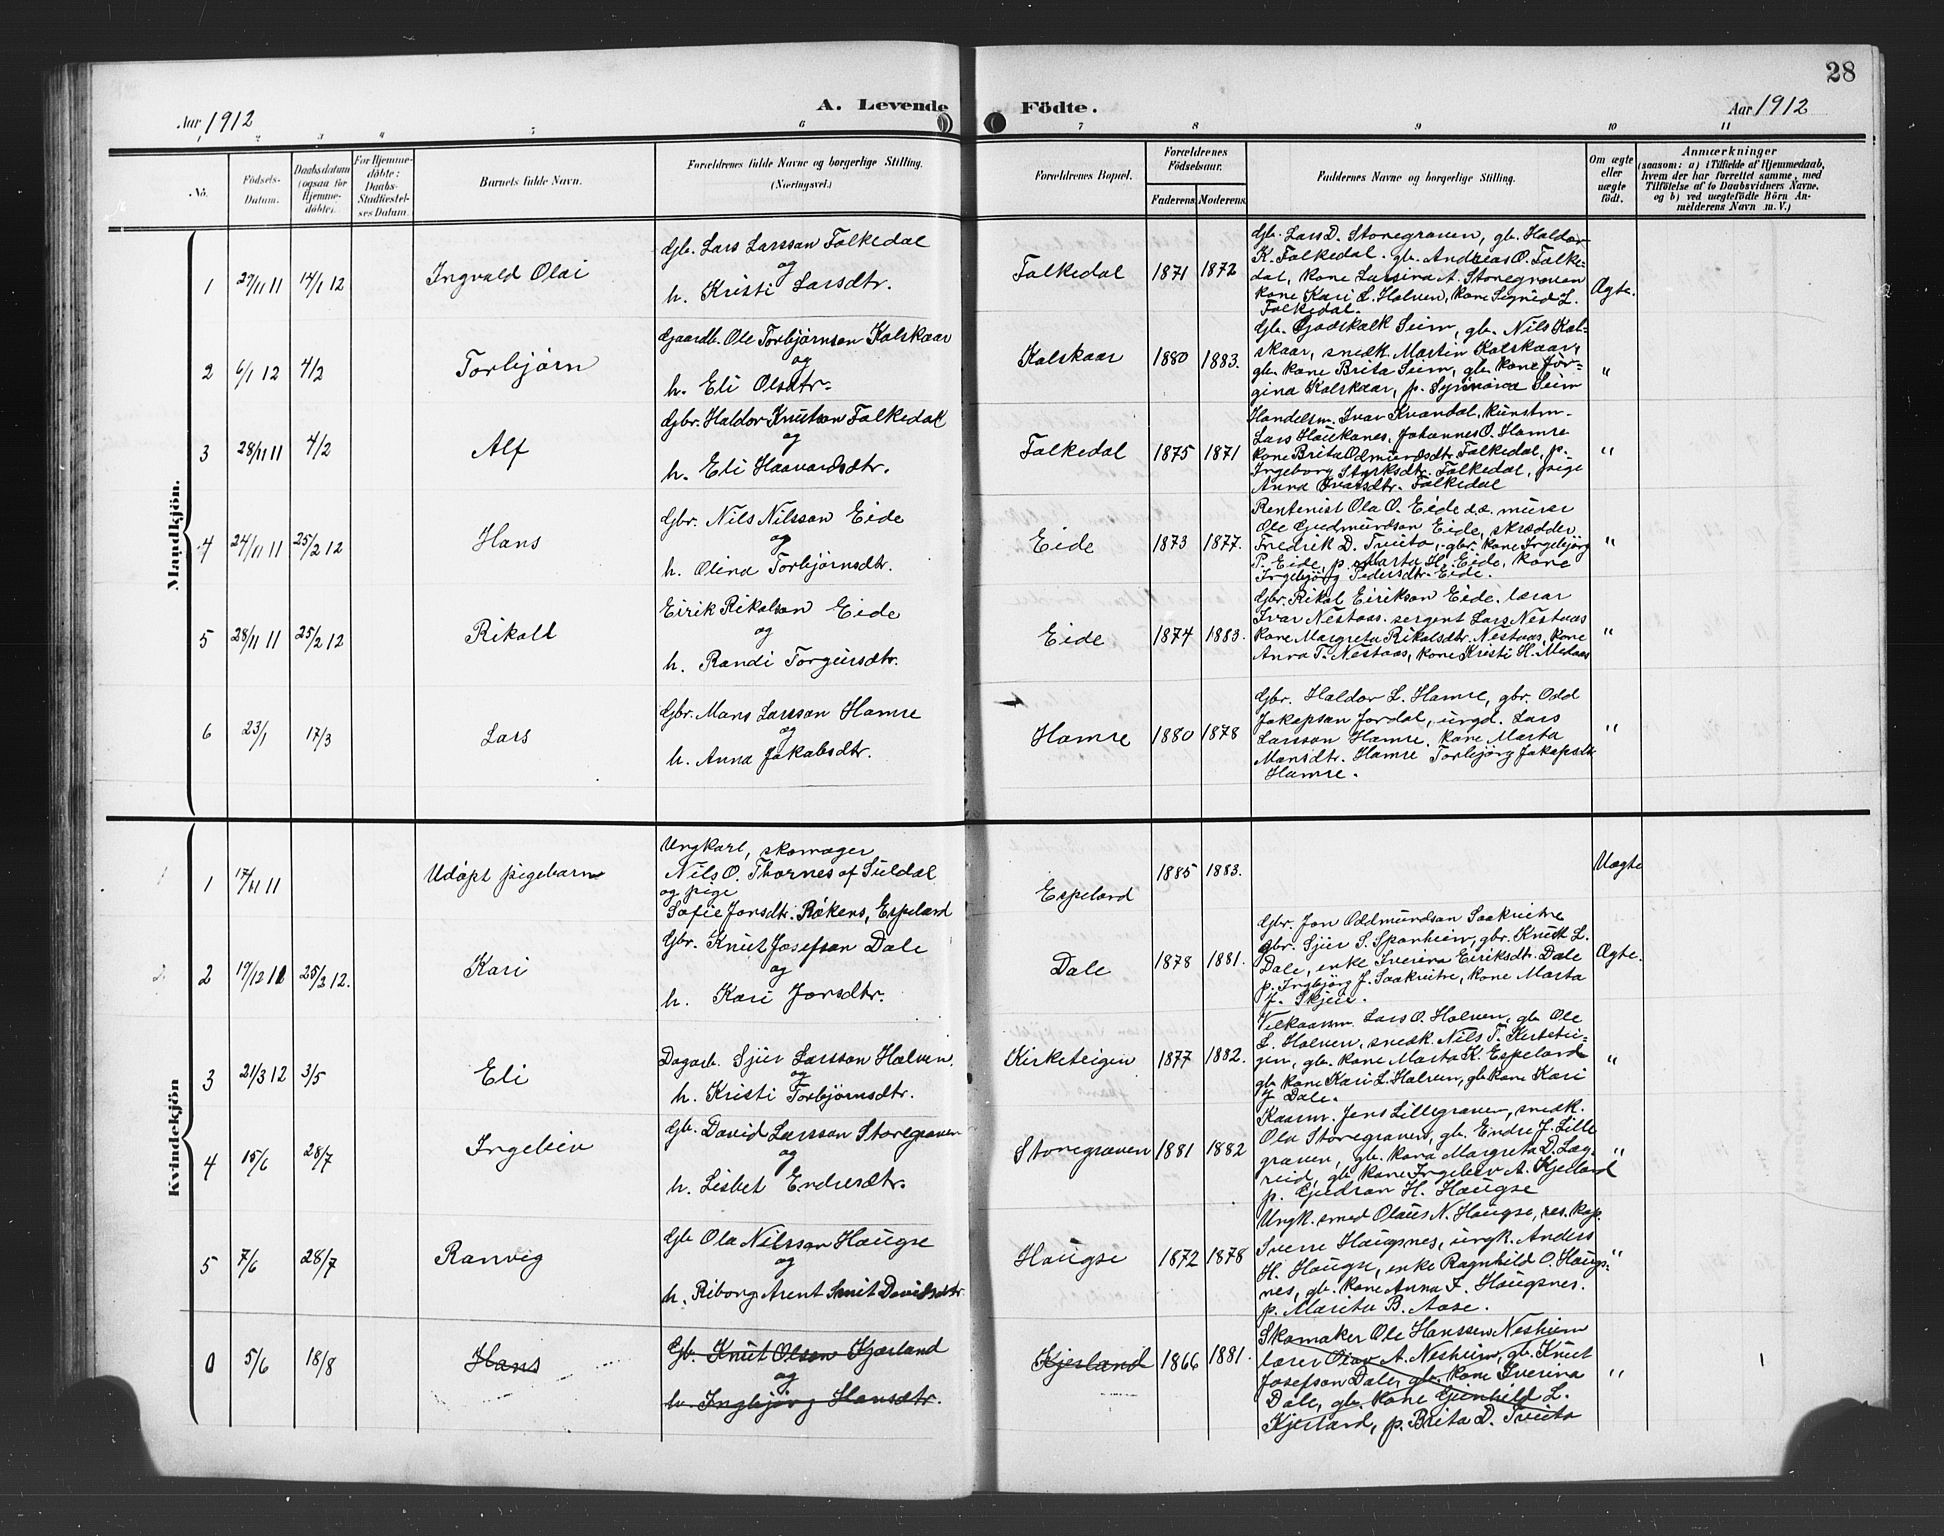 28
Aar 1912
A. Levende Födte.
Aar 1912
1 2 3 4 5 6 7 8 9 10 11
No.
Födsels-Datum.
Daabsdatum (ogsaa for Hjemmedöbte).
For Hjemmedöbte: Daabs-Stadfæstelses Datum.
Barnets fulde Navn.
Forældrenes fulde Navne og borgerlige Stilling.
(Næringsvei.)
Forældrenes Bopæl.
Forældrenes Födselsaar.
Faderens. Moderens.
Faddernes Navne og borgerlige Stilling.
Om ægte eller uægte födt.
Anmærkninger
(saasom: a) i Tilfælde af Hjemmedaab,
hvem der har forrettet samme, med
Tilföielse af to Daabsvidners Navne,
og b) ved uægtefödte Börn Anmelderens Navn m. V.)
Mandkjön.
1 27/11 11 14/1 12
Ingvald Olai
Gb. Lars Larsson Folkedal
og
h. Kristi Larsdtr.
Folkedal 1871 1872
Gb. Lars D. Storegraven, gb. Haldor
K. Folkedal. gb. Andreas O. Folke-
dal, kone Larsina A. Storegraven
kone Kari L. Halven, kone Signed L.
Folkedal.
Ægte.
2 6/1 12 4/2
Torbjørn
Gaardb. Ole Torbjørnson Kolskaar
og
h. Eli Olsdtr.
Kolskaar 1880 1883.
Gb. Godskalk Seim, gb. Nils Kol-
skaar, snedk. Martin Kolskaar,
gb. kone Brita Seim, gb. kone Jør-
gina Kolskaar, p. Synnøva Seim
"
3 28/11 11 4/2
Alf
Gbr. Haldor Knutson Folkedal
og
h. Eli Haavardsdtr.
Folkedal 1875 1871
Handelsm. Ivar Kvandal, kunstm.
Lars Haukanes, Johannes O. Hamre
kone Brita Odmundsdtr. Folkedal, p.
Ingeborg Styrksdtr. Folkedal, pige
Anna Ivarsdtr. Folkedal
"
4 24/11 11 25/2 12
Hans
Gbr. Nils Nilsson Eide
og
h. Olina Torbjørnsdtr.
Eide 1873 1877.
Rentenist Ola O. Eide d.æ. murar
Ole Gudmundson Eide, skrædder
Fredrik D. Tveito, gbr. kone Ingebjørg
P. Eide, p. Marta H. Eide, kone
Ingebjørg Pedersdtr. Eide.
"
5 28/11 11 25/2 12
Rikolt
Eirik Rikolson Eide
og
h. Randi Torgeirsdtr.
Eide 1874 1883.
Gbr. Rikol Eirikson Eide. lærar
Ivar Nestaas. sergent Lars Nestaas
kone Margreta Rikolsdtr. Nestaas, kone
Anna T. Nestaas, kone Kristi H. Medaas
"
6 23/1 17/3
Lars
Gbr. Mons Larsson Hamre
og
h. Anna Jakobsdtr.
Hamre 1880 1878
Gbr. Haldor L. Hamre, gbr. Odd
Jakopson Jordal, ungd. Lars
Larsson Hamre, kone Marta
Monsdtr. Hamre Torbjørg Jakopsdtr
Hamre.
"
Kvindekjön
1 17/11 11
Udøpt pigebarn
Ungkarl, skomager
Nils O. Thornes af Suldal
og pige
Sofie Jonsdtr. Røkens, Espeland
Espeland 1885 1883.
Uægte
2 19/12 11 25/2 12.
Kari
Gbr. Knut Josefson Dale
og
h. Kari Jonsdtr.
Dale 1878 1881.
Gbr. Jon Oddmundson Saakvitne
gbr. Sjur S. Spanheim, gbr. Knut L.
Dale, enke Iverina Eiriksdtr. Dale
p. Ingbjørg J. Saakvitne, kone Marta
J. Skjeie.
Ægte.
3 21/3 12 3/5
Eli
Dagarb. Sjur Larsson Halven
og
h. Kristi Torbjørnsdtr.
Kirketeigen 1877 1882.
Vilkaarsm. Lars O. Halven, gb. Ole
L. Halven, snedk. Nils T. Kirketei-
gen, gb. kone Marta K. Espeland
gb. kone Kari L. Halven, gb. kone Kari
J. Dale.
"
4 15/6 28/7
Ingeleiv
Gb. David Larsson Storegraven
og
h. Lisbet Endresdtr.
Storegraven 1881 1882
Kaarm. Jens Lillegraven, snedk.
Ola Storegraven, gb. Endre J. Lille
graven, gb. kona Margreta D. Læg-
reid, gb. kone Ingeleiv A. Kjerland
p. Gudrun H. Haugse
"
5 7/6 28/7
Ranveig
Gb. Ola Nilsson Haugse
og
h. Riborg Arent Smit Davidsdtr.
Haugse 1872 1878
Ungk. smed Olaus N. Haugse, res. kap.
Sverre Haugsnes, ungk. Anders
H. Haugse, enke Ragnhild O. Haugs-
nes, gb. kone Anna F. Haugsnes.
p. Marita B. Aase.
"
0 5/6 18/8
Hans
Gb. Knut Olson Kjerland
og
h. Ingbjørg Hansdtr.
Kjerland 1866 1881.
Skomaker Ole Hanssen Nesheim
lærer Olav A. Nesheim, gb. Knut
Josefson Dale, gb. kone Iverina
Dale, gb. kone Gunhild L.
Kjerland, p. Brita D. Tveito
"